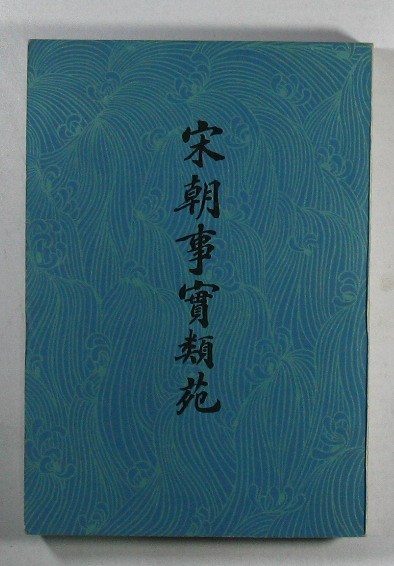 宋朝事實類苑